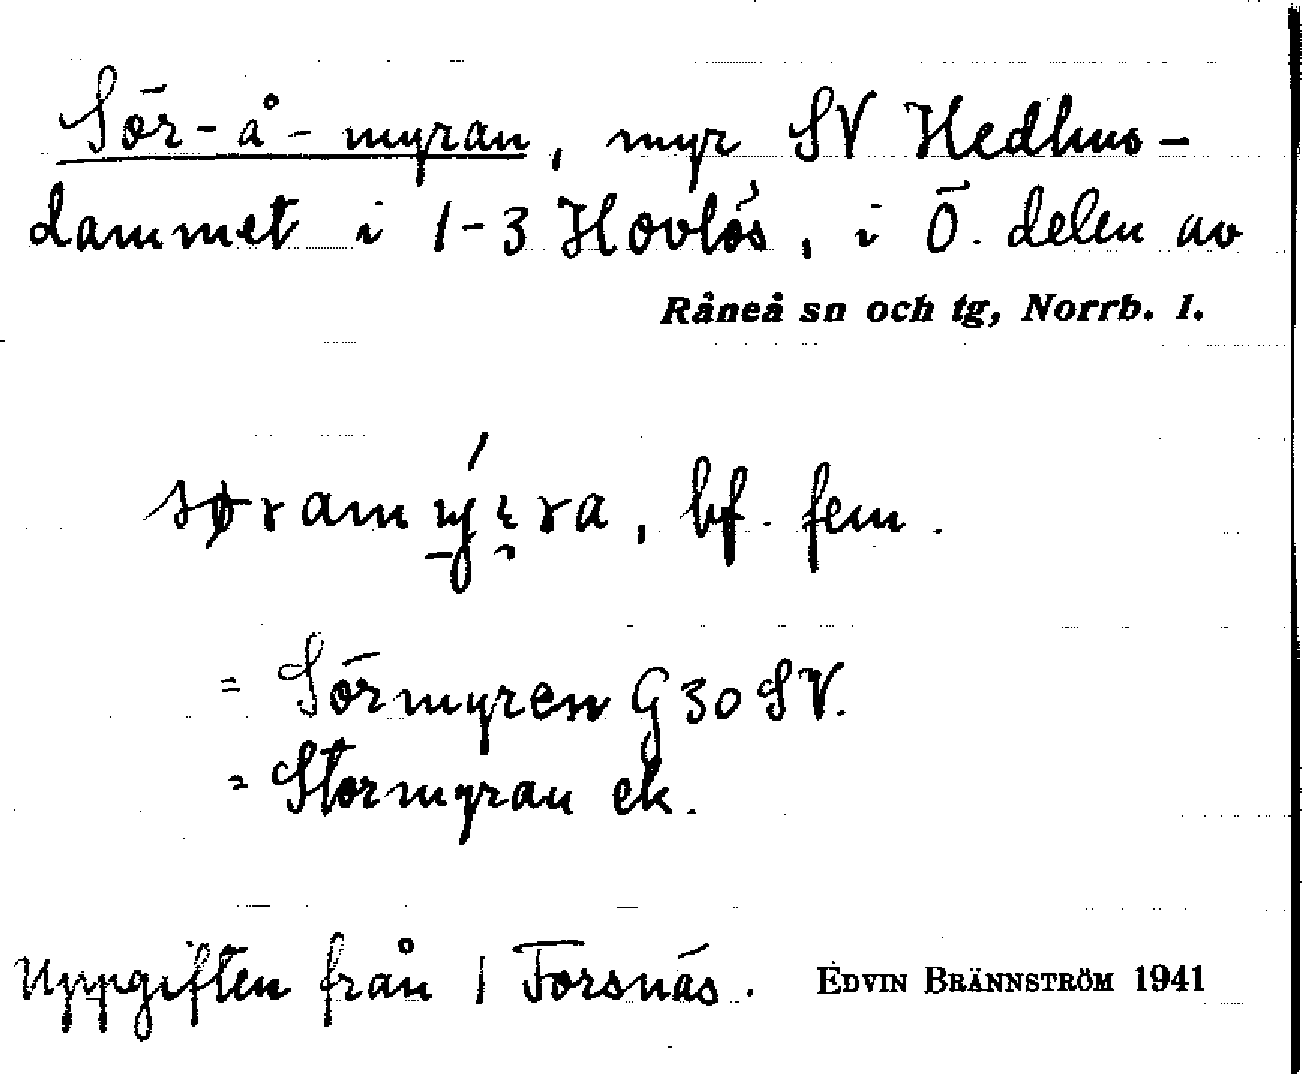 Sör-å-myran, myr SV Hedhus-
dammet i 1-3 Hovlös, i Ö. delen av
Råneå sn och tg, Norrb. l.
bf. fem.
= Sörmyren G 30 SV.
= Stormyran ek.
Uppgiften från 1 Forsnäs. EDVIN BRÄNNSTRÖM 1941